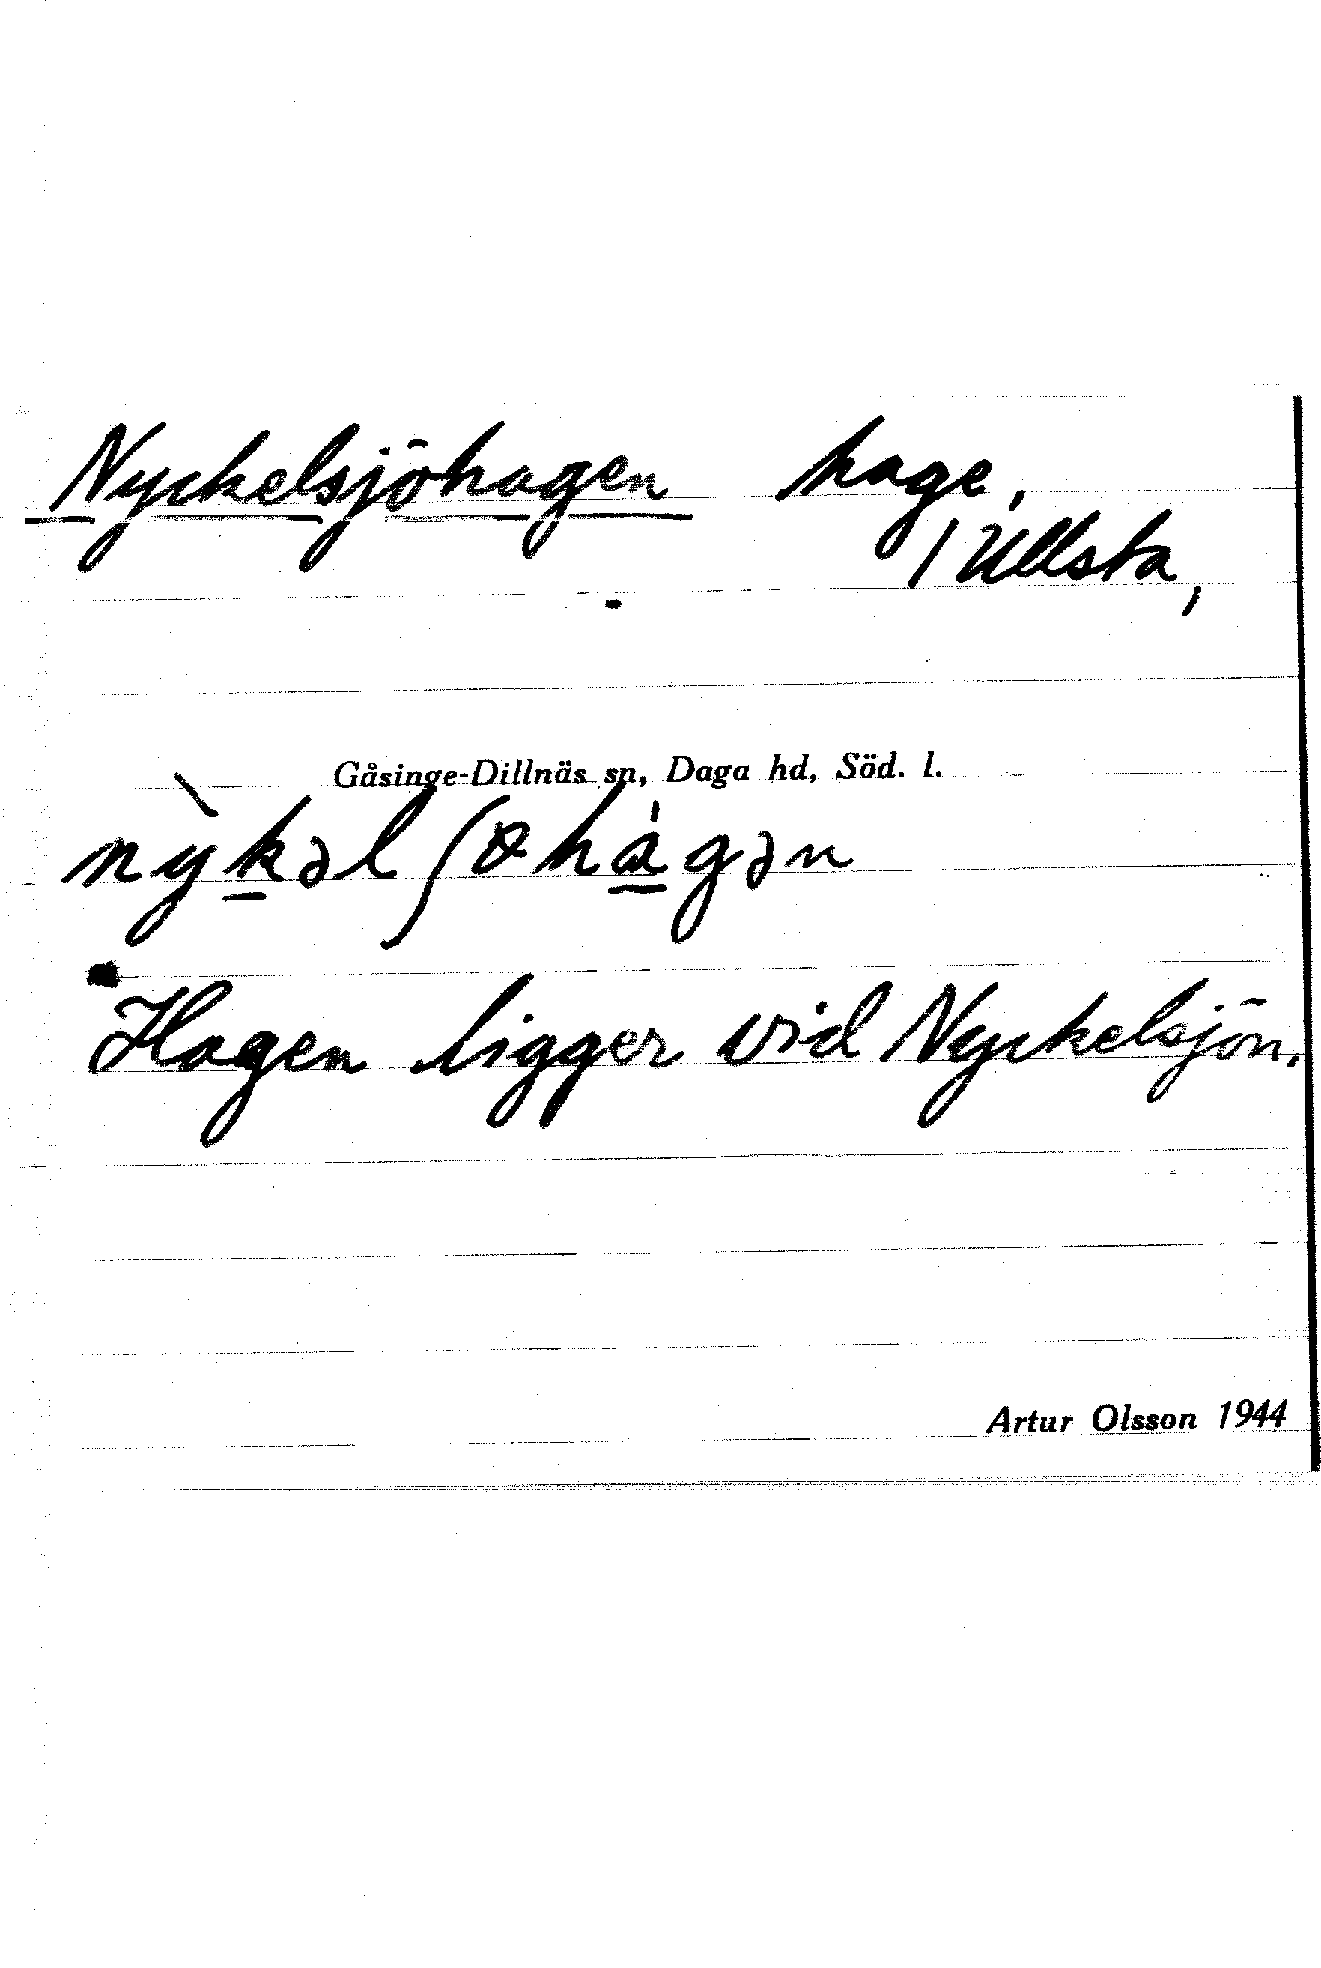 Nyckelsjöhagen hage,
/ Ullsta,
Gåsinge-Dillnäs sn, Daga hd, Söd. l.
nỳkəlʃøhágən
Hagen ligger vid Nyckelsjön.
Artur Olsson 1944